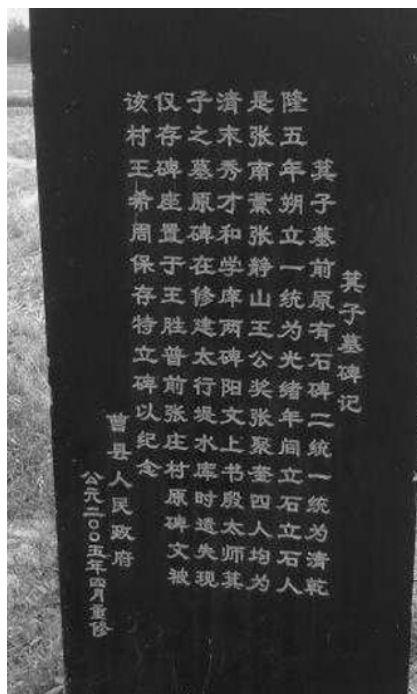 箕子墓碑记
箕子墓前原有石碑二统一统为清乾
隆五年朔立一统为光绪年间立石立石人
是张南薰张静山王公奖张聚奎四人均为
清末秀才和学庠两碑阳文上书殷太师箕
子之墓原碑在修建太行堤水库时遗失现
仅存碑座置于王胜普前张庄村原碑文被
该村王希周保存特立碑以纪念
曹县人民政府
公元二〇〇五年四月重修